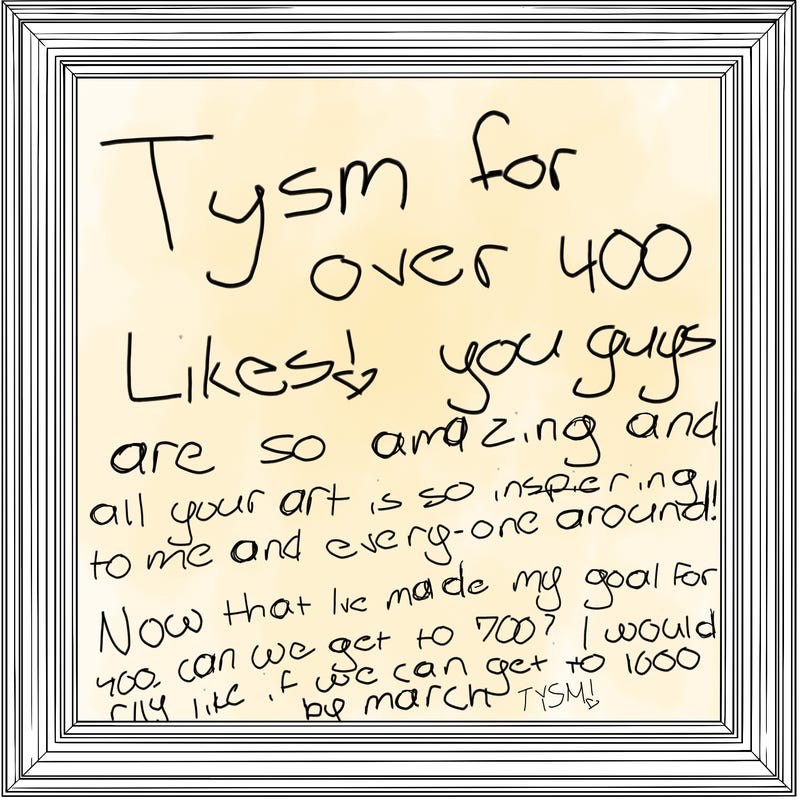 Tysm for
over 400
Likes! you guys
are so amazing and
all your art is so inspiering
to me and every-one around!
Now that Ive made my goal for
400. can we get to 700? I would
rlly like if we can get to 1000
by march TYSM!